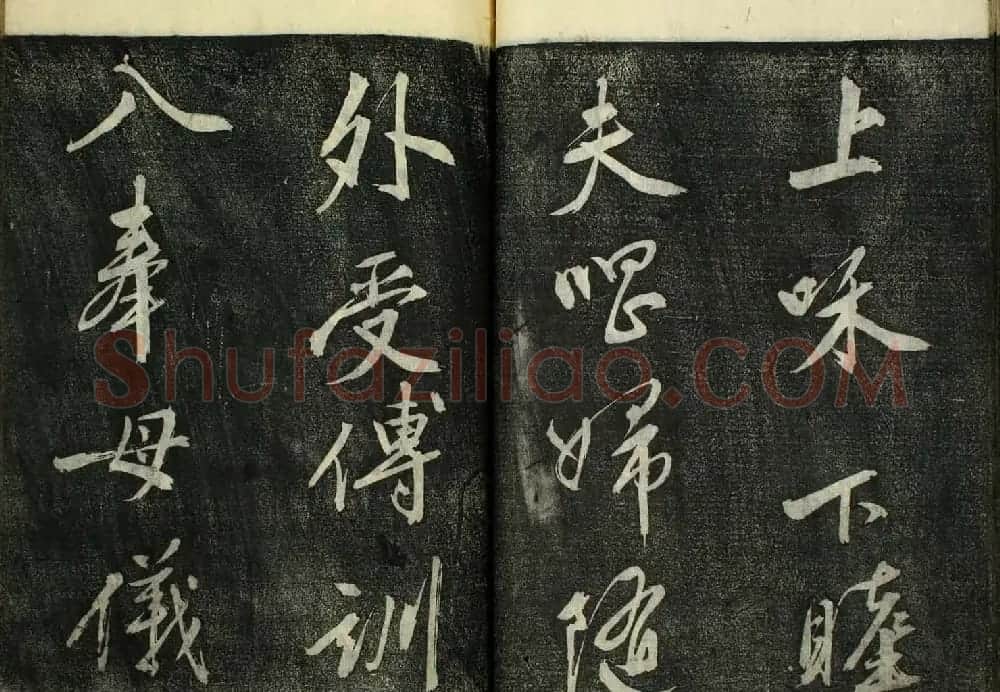 上咊下睦
夫唱婦随
外受傅訓
入奉母儀
Shufaziliao.COM